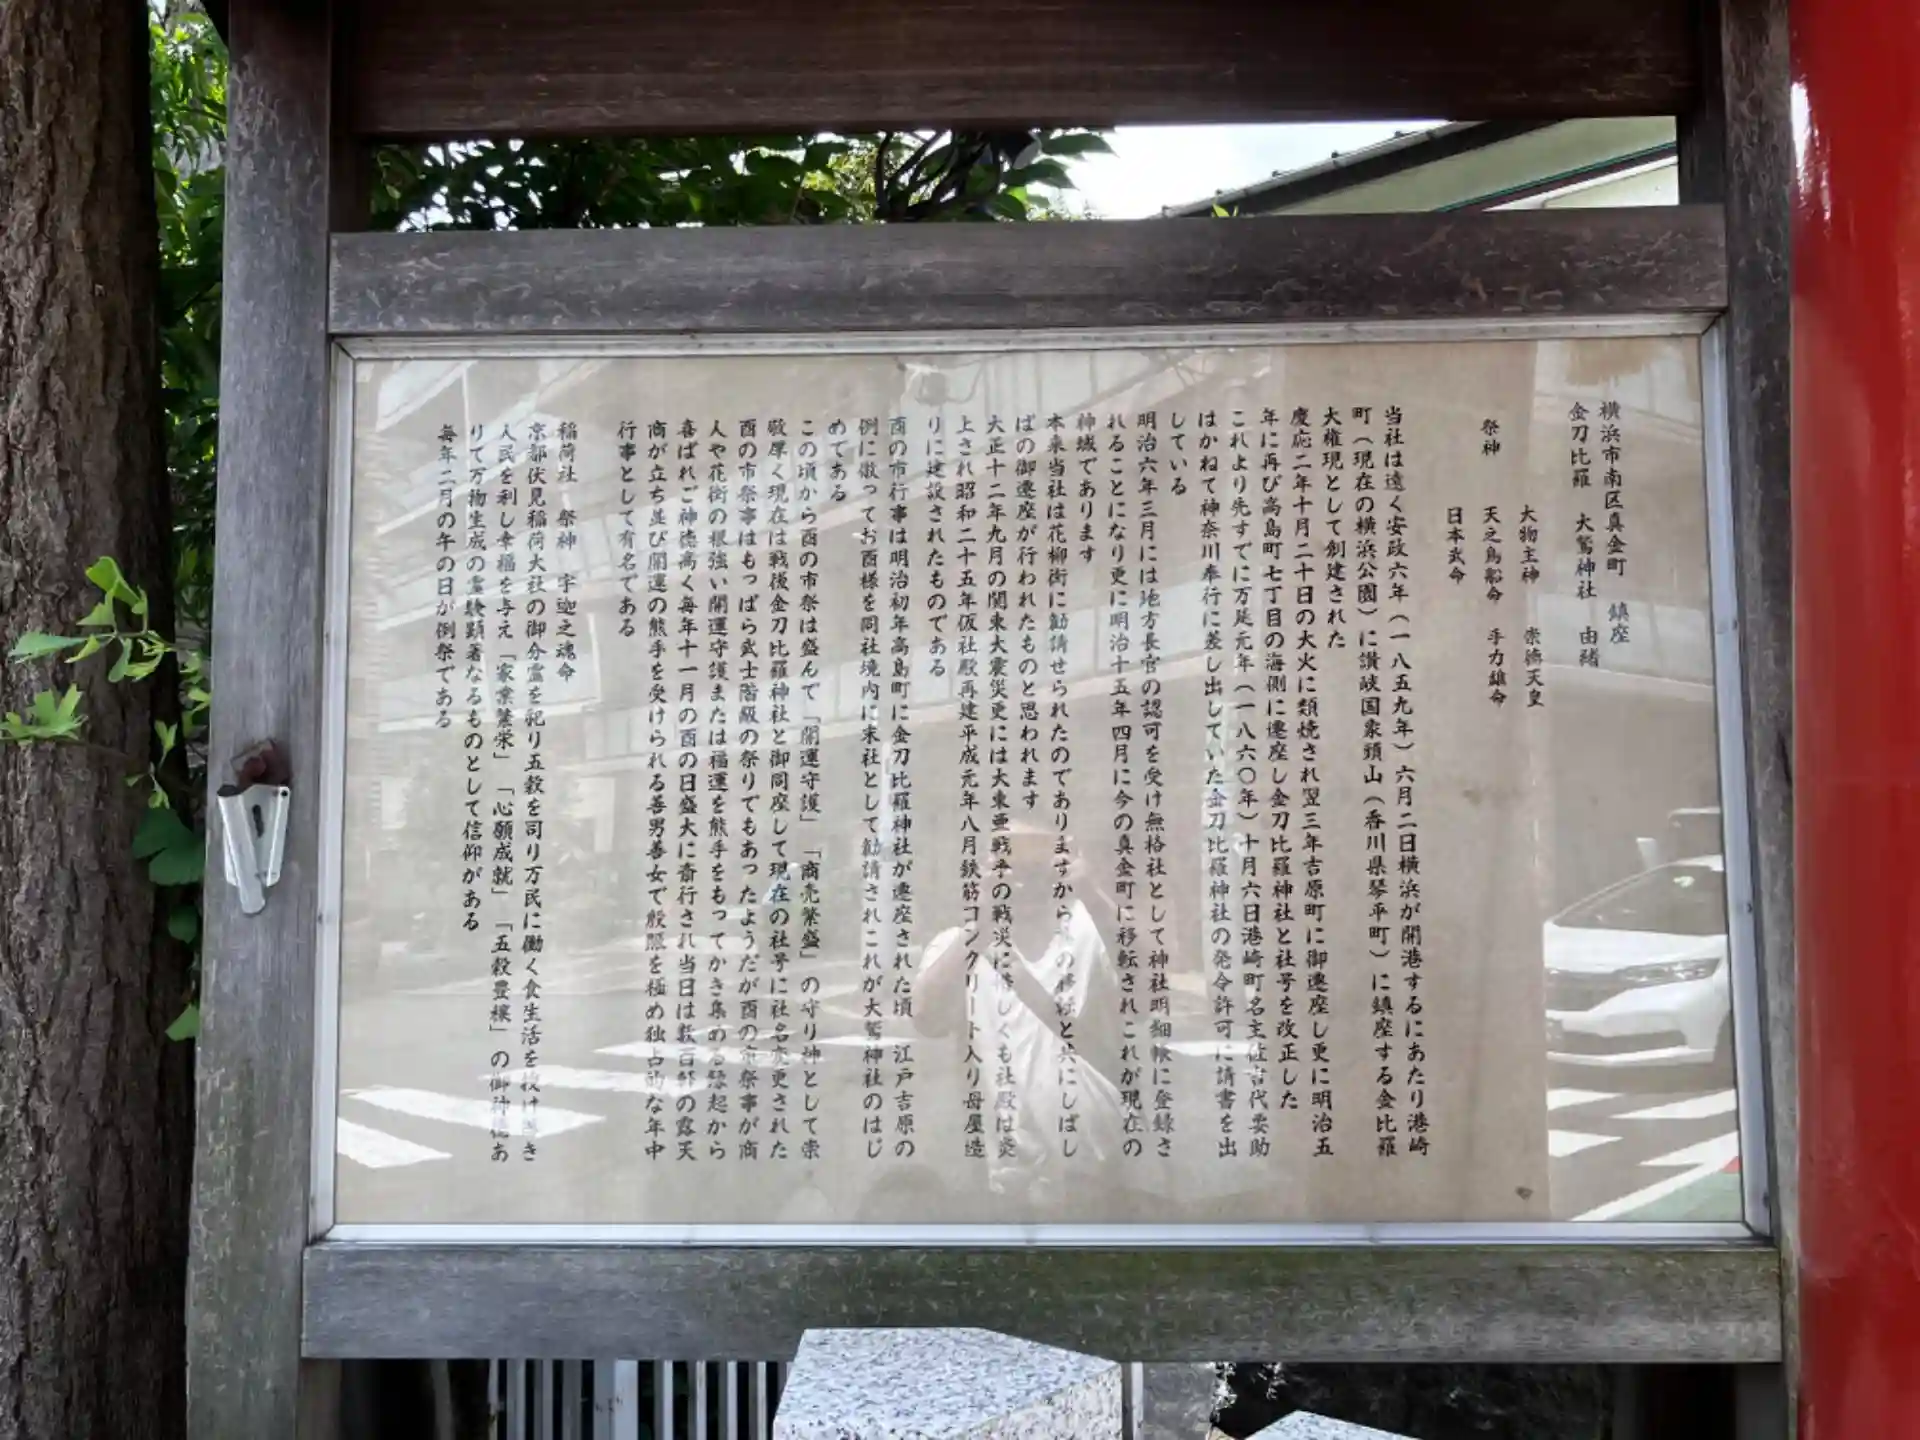 横浜市南区真金町 鎮座
金刀比羅 大鷲神社 由緒
大物主神 崇徳天皇
祭神 天之鳥船命 手力雄命
日本武命
当社は遠く安政六年(一八五九年)六月二日横浜が開港するにあたり港崎
町(現在の横浜公園)に讃岐国象頭山(香川県琴平町)に鎮座する金比羅
大権現として創建された
慶応二年十月二十日の大火に類焼され翌三年吉原町に御遷座し更に明治五
年に再び高島町七丁目の海側に遷座し金刀比羅神社と社号を改正した
これより先すでに万延元年(一八六〇年)十月六日港崎町名主佐吉代要助
はかねて神奈川奉行に差し出していた金刀比羅神社の発令許可に請書を出
している
明治六年三月には地方長官の認可を受け無格社として神社明細帳に登録さ
れることになり更に明治十五年四月に今の真金町に移転されこれが現在の
神域であります
本来当社は花柳街に勧請せられたのでありますから の移転と共にしばし
ばの御遷座が行われたものと思われます
大正十二年九月の関東大震災更には大東亜戦争の戦災に惜しくも社殿は炎
上され昭和二十五年仮社殿再建平成元年八月鉄筋コンクリート入り母屋造
りに建設されたものである
酉の市行事は明治初年高島町に金刀比羅神社が遷座された頃 江戸吉原の
例に倣ってお酉様を同社境内に末社として勧請されこれが大鷲神社のはじ
めである
この頃から酉の市祭は盛んで「開運守護」「商売繁盛」の守り神として崇
敬厚く現在は戦後金刀比羅神社と御同座して現在の社号に社名変更された
酉の市祭事はもっぱら武士階級の祭りでもあったようだが酉の市祭事が商
人や花街の根強い開運守護または福運を熊手をもってかき集める縁起から
喜ばれご神徳高く毎年十一月の酉の日盛大に斎行され当日は数百軒の露天
商が立ち並び開運の熊手を受けられる善男善女で殷賑を極め独占的な年中
行事として有名である
稲荷社 祭神 宇迦之魂命
京都伏見稲荷大社の御分霊を祀り五穀を司り万民に働く食生活を授け導き
人民を利し幸福を与え「家業繁栄」「心願成就」「五穀豊穣」の御神徳あ
りて万物生成の霊験顕著なるものとして信仰がある
毎年二月の午の日が例祭である